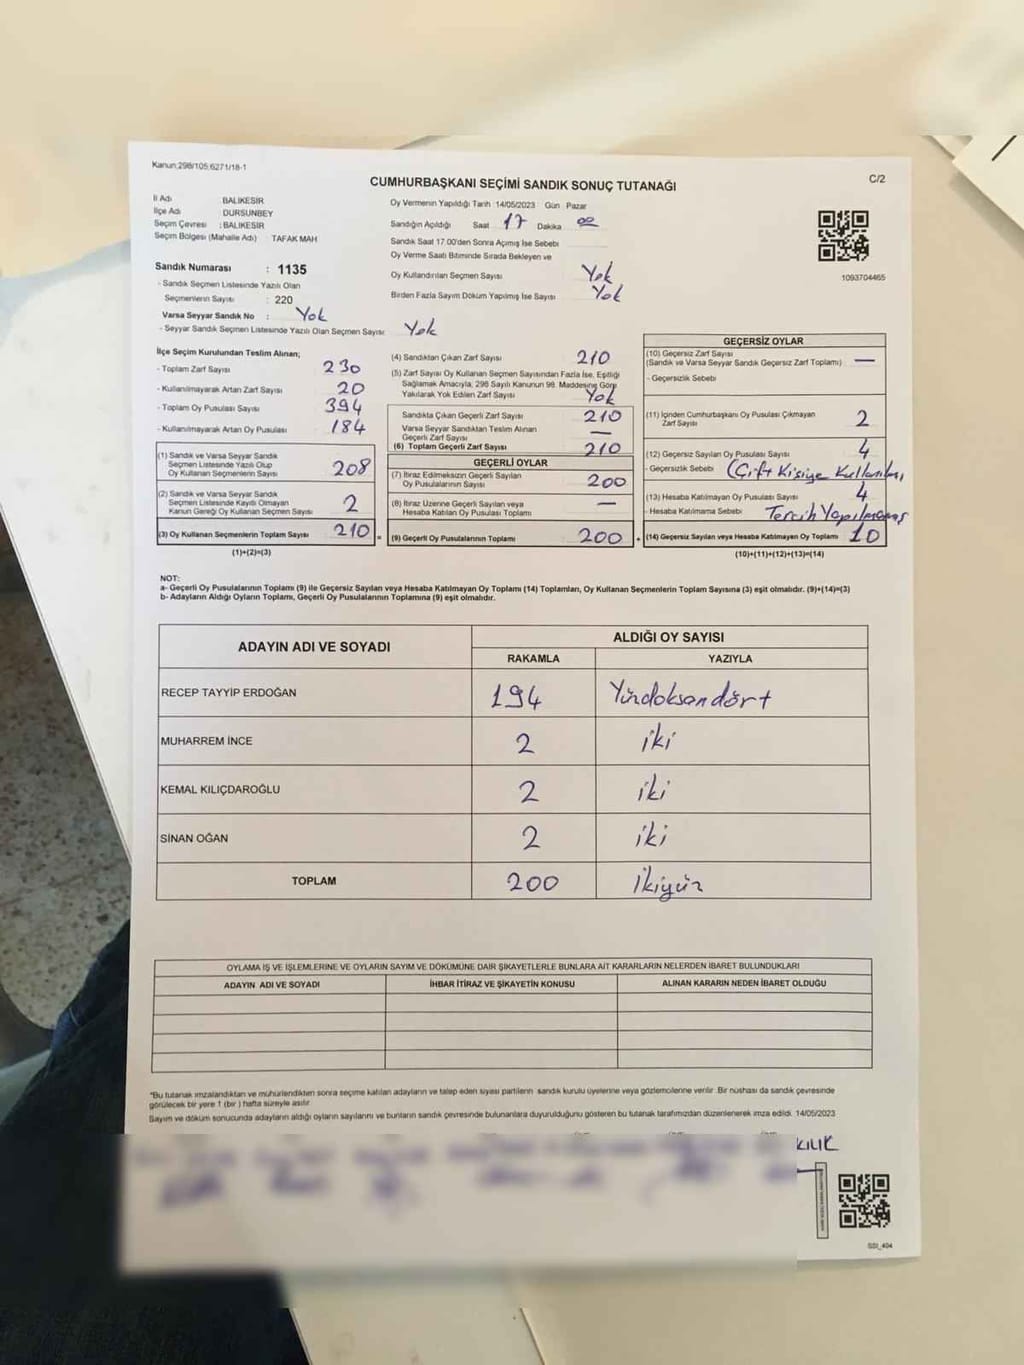 Kanun;298/105;6271/18-1
CUMHURBAŞKANI SEÇİMİ SANDIK SONUÇ TUTANAĞI
C/2
İl Adı BALIKESİR
İlçe Adı : DURSUNBEY
Seçim Çevresi : BALIKESİR
Seçim Bölgesi (Mahalle Adı) TAFAK MAH
Sandık Numarası : 1135
- Sandık Seçmen Listesinde Yazılı Olan
Seçmenlerin Sayısı : 220
Varsa Seyyar Sandık No : Yok
- Seyyar Sandık Seçmen Listesinde Yazılı Olan Seçmen Sayısı: Yok
Oy Vermenin Yapıldığı Tarih :14/05/2023 Gün Pazar
Sandığın Açıldığı Saat 17 Dakika 00
Sandık Saat 17.00'den Sonra Açımış İse Sebebi
Oy Verme Saati Bitiminde Sırada Bekleyen ve
Oy Kullandırılan Seçmen Sayısı Yok
Birden Fazla Sayım Döküm Yapılmış İse Sayısı Yok
1093704465
İlçe Seçim Kurulundan Teslim Alınan;
- Toplam Zarf Sayısı 230
- Kullanılmayarak Artan Zarf Sayısı 20
- Toplam Oy Pusulası Sayısı 394
- Kullanılmayarak Artan Oy Pusulası 184
(1) Sandık ve Varsa Seyyar Sandık
Seçmen Listesinde Yazılı Olup
Oy Kullanan Seçmenlerin Sayısı 208
(2) Sandık ve Varsa Seyyar Sandık
Seçmen Listesinde Kayıtlı Olmayan
Kanun Gereği Oy Kullanan Seçmen Sayısı 2
(3) Oy Kullanan Seçmenlerin Toplam Sayısı 210 =
(1)+(2)=(3)
(4) Sandıktan Çıkan Zarf Sayısı 210
(5) Zarf Sayısı Oy Kullanan Seçmen Sayısından Fazla İse, Eşitliği
Sağlamak Amacıyla, 298 Sayılı Kanunun 98. Maddesine Göre
Yakılarak Yok Edilen Zarf Sayısı Yok
Sandıkta Çıkan Geçerli Zarf Sayısı 210
Varsa Seyyar Sandıktan Teslim Alınan
Geçerli Zarf Sayısı —
(6) Toplam Geçerli Zarf Sayısı 210
GEÇERLİ OYLAR
(7) İtiraz Edilmeksizin Geçerli Sayılan
Oy Pusulalarının Sayısı 200
(8) İtiraz Üzerine Geçerli Sayılan veya
Hesaba Katılan Oy Pusulası Toplamı —
(9) Geçerli Oy Pusulalarının Toplamı 200 +
GEÇERSİZ OYLAR
(10) Geçersiz Zarf Sayısı
(Sandık ve Varsa Seyyar Sandık Geçersiz Zarf Toplamı) —
- Geçersizlik Sebebi
(11) İçinden Cumhurbaşkanı Oy Pusulası Çıkmayan
Zarf Sayısı 2
(12) Geçersiz Sayılan Oy Pusulası Sayısı 4
- Geçersizlik Sebebi (Çift Kişiye
(13) Hesaba Katılmayan Oy Pusulası Sayısı 4
- Hesaba Katılmama Sebebi Tercih Yapılmamış
(14) Geçersiz Sayılan veya Hesaba Katılmayan Oy Toplamı 10
(10)+(11)+(12)+(13)=(14)
NOT:
a- Geçerli Oy Pusulalarının Toplamı (9) ile Geçersiz Sayılan veya Hesaba Katılmayan Oy Toplamı (14) Toplamları, Oy Kullanan Seçmenlerin Toplam Sayısına (3) eşit olmalıdır. (9)+(14)=(3)
b- Adayların Aldığı Oyların Toplamı, Geçerli Oy Pusulalarının Toplamına (9) eşit olmalıdır.
ADAYIN ADI VE SOYADI ALDIĞI OY SAYISI
RAKAMLA YAZIYLA
RECEP TAYYİP ERDOĞAN 194 Yüzdoksandört
MUHARREM İNCE 2 iki
KEMAL KILIÇDAROĞLU 2 iki
SİNAN OĞAN 2 iki
TOPLAM 200 İkiyüz
OYLAMA İŞ VE İŞLEMLERİNE VE OYLARIN SAYIM VE DÖKÜMÜNE DAİR ŞİKAYETLERLE BUNLARA AİT KARARLARIN NELERDEN İBARET BULUNDUKLARI
ADAYIN ADI VE SOYADI İHBAR İTİRAZ VE ŞİKAYETİN KONUSU ALINAN KARARIN NEDEN İBARET OLDUĞU
"Bu tutanak imzalandıktan ve mühürlendikten sonra seçime katılan adayların ve talep eden siyasi partilerin sandık kurulu üyelerine veya gözlemcilerine verilir. Bir nüshası da sandık çevresinde
görülecek bir yere 1 (bir ) hafta süreyle asılır.
Sayım ve döküm sonucunda adayların aldığı oyların sayılarını ve bunların sandık çevresinde bulunanlara duyurulduğunu gösteren bu tutanak tarafımızdan düzenlenerek imza edildi. 14/05/2023
KILIK
SSI_404